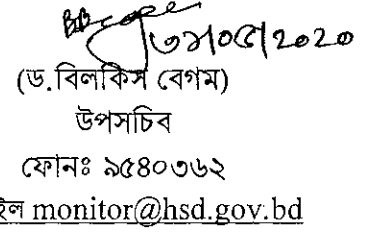 (ড.বিলকিস বেগম)
উপসচিব
ফোনঃ ৯৫৪০৩৬২
ইল monitor@hsd.gov.bd